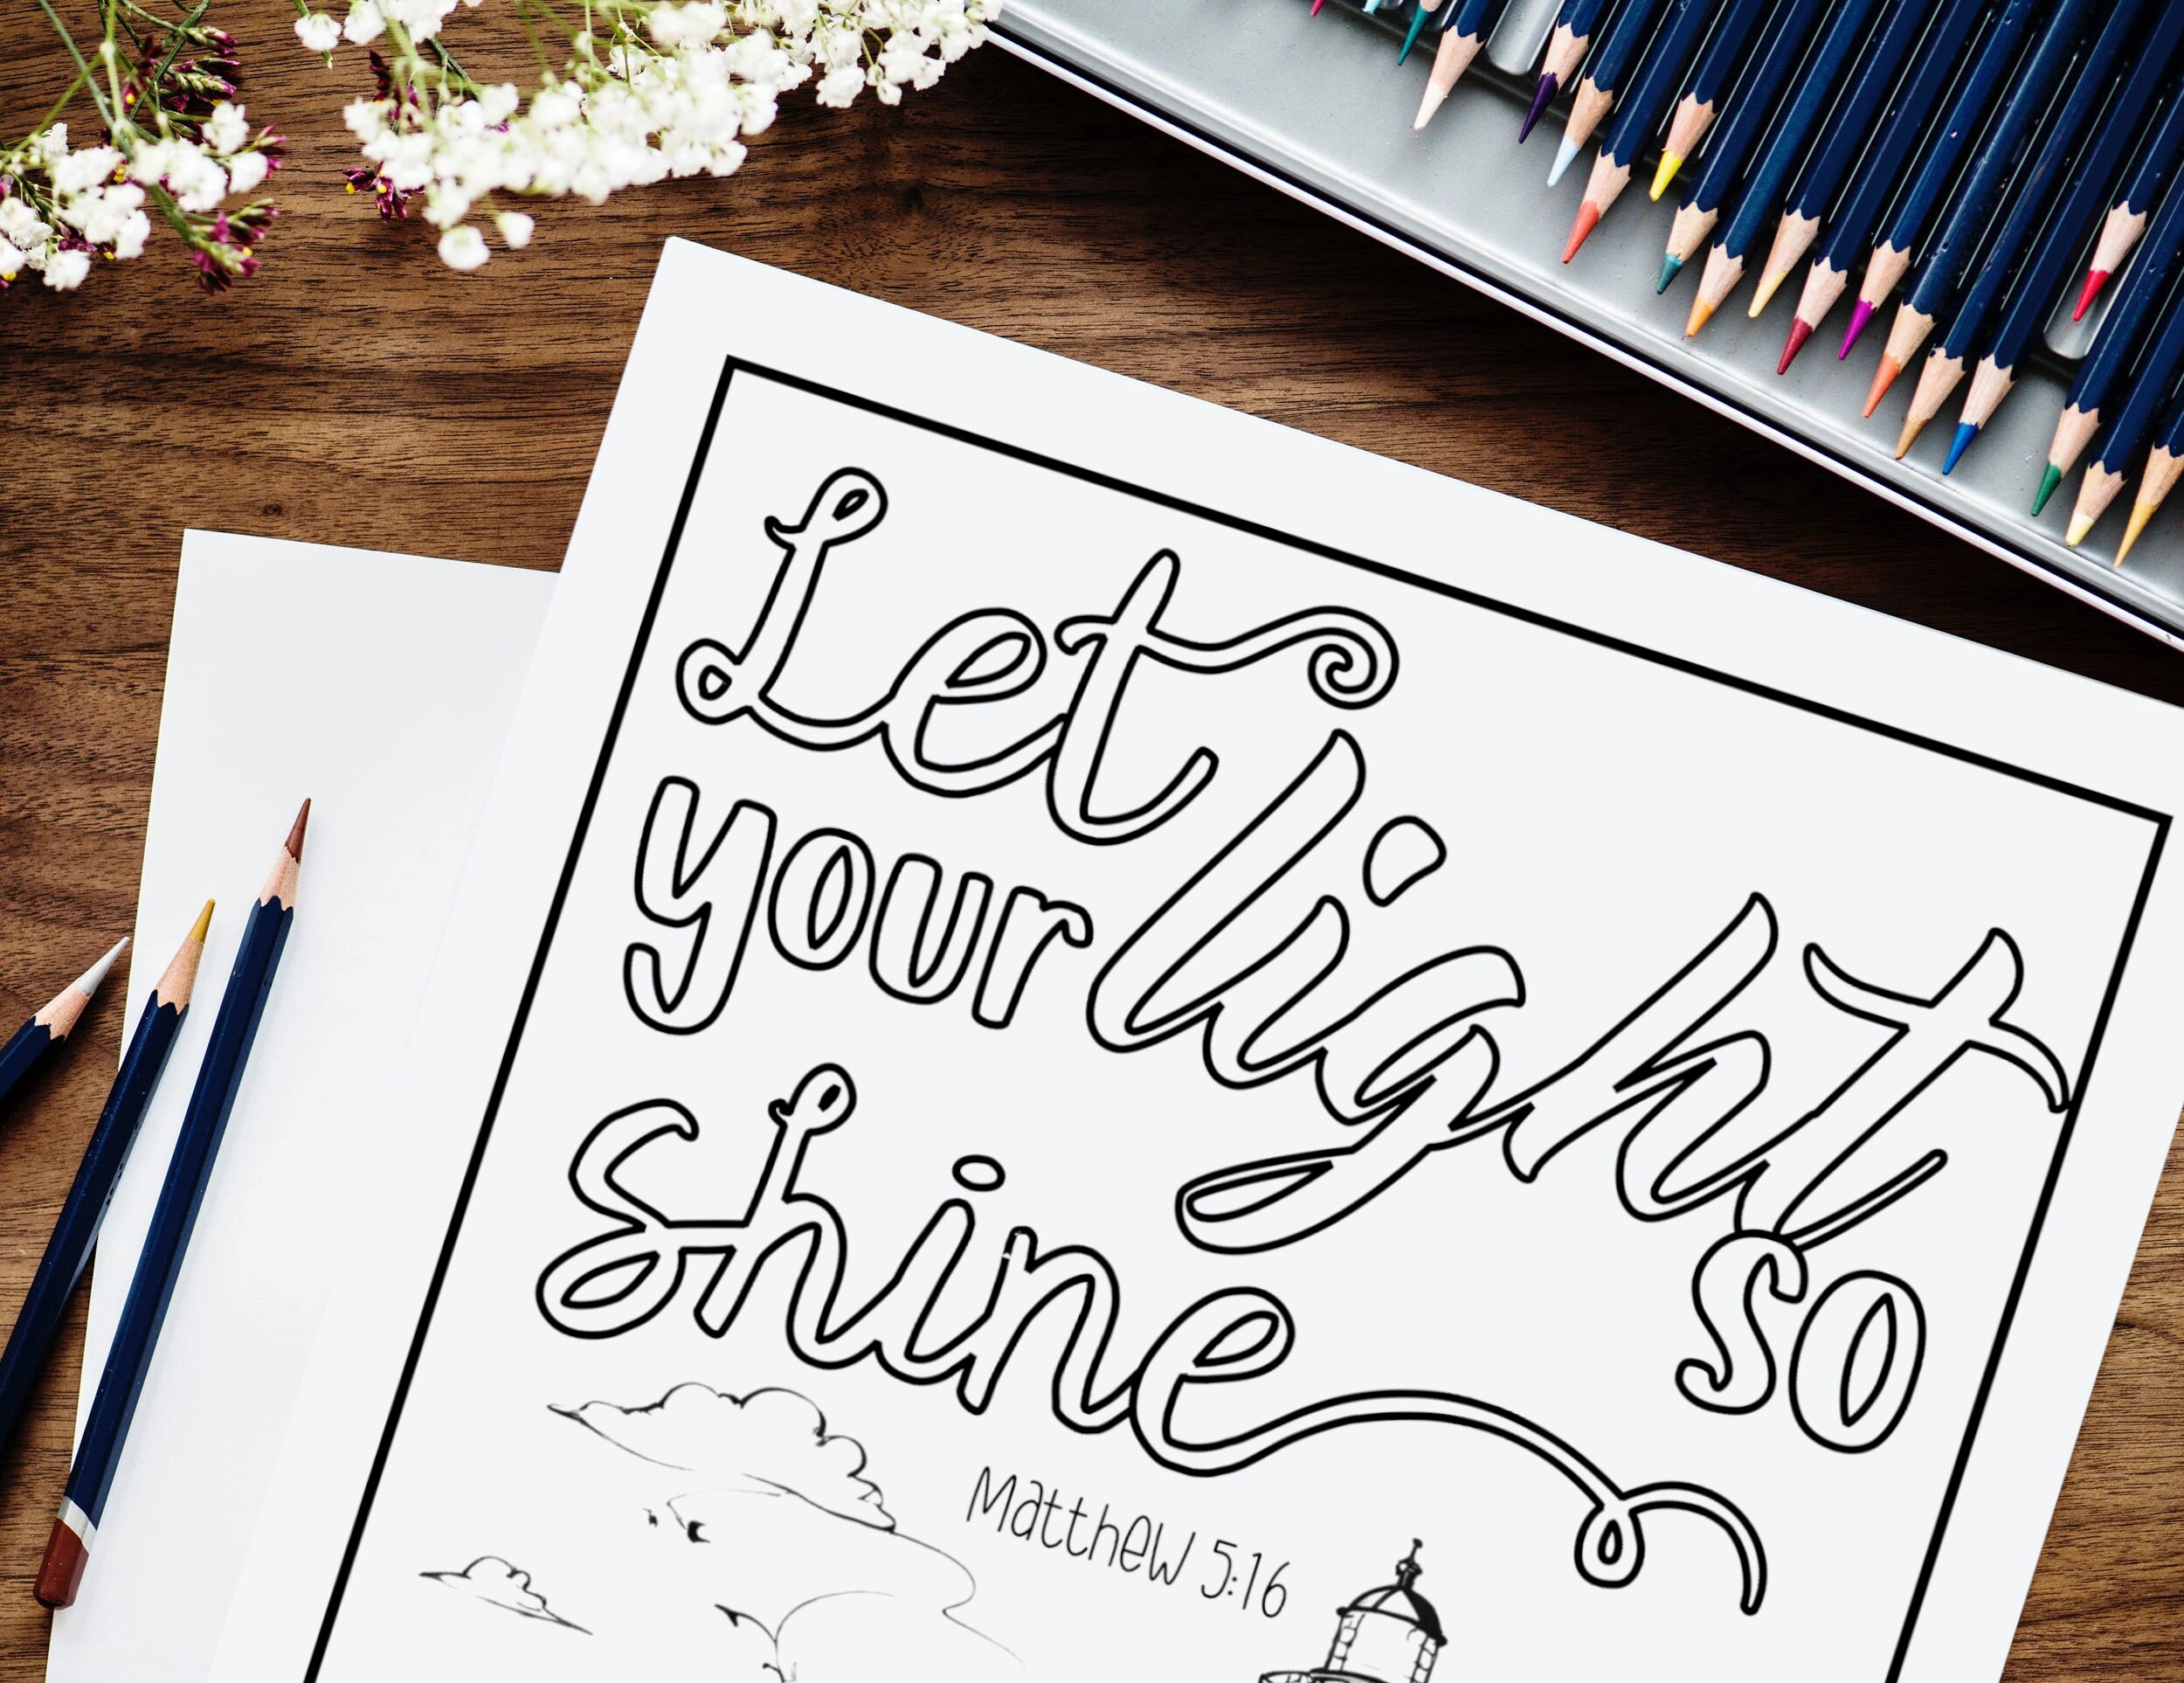 Let
your light so
shine
Matthew 5:16